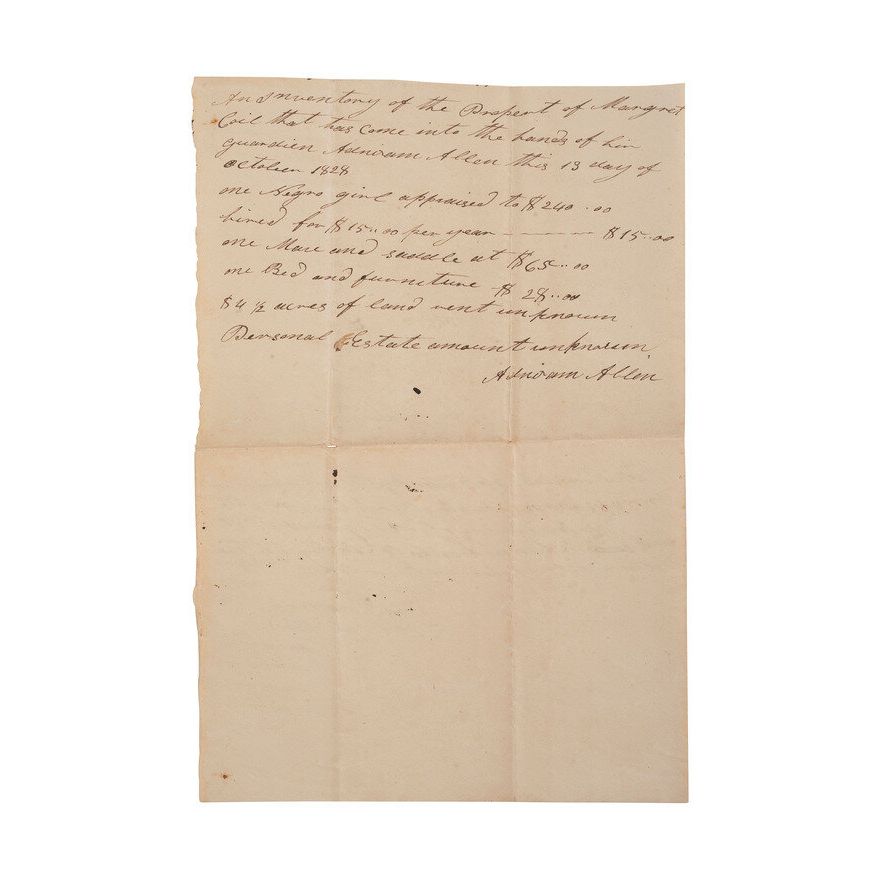 An Inventory of the Propert of Margret
Coil that has Come into the hands of hir
guardien Adniram Allen this 13 day of
october 1828
one Negro girl appraised to $240..00
hired for $15..00 per year — — — $15..00
one Mare and saddle at $65..00
one Bed and furniture $ 28..00
$4 1/2 acres of land rent unknown
Personal Estate amount unknown
Adniram Allen